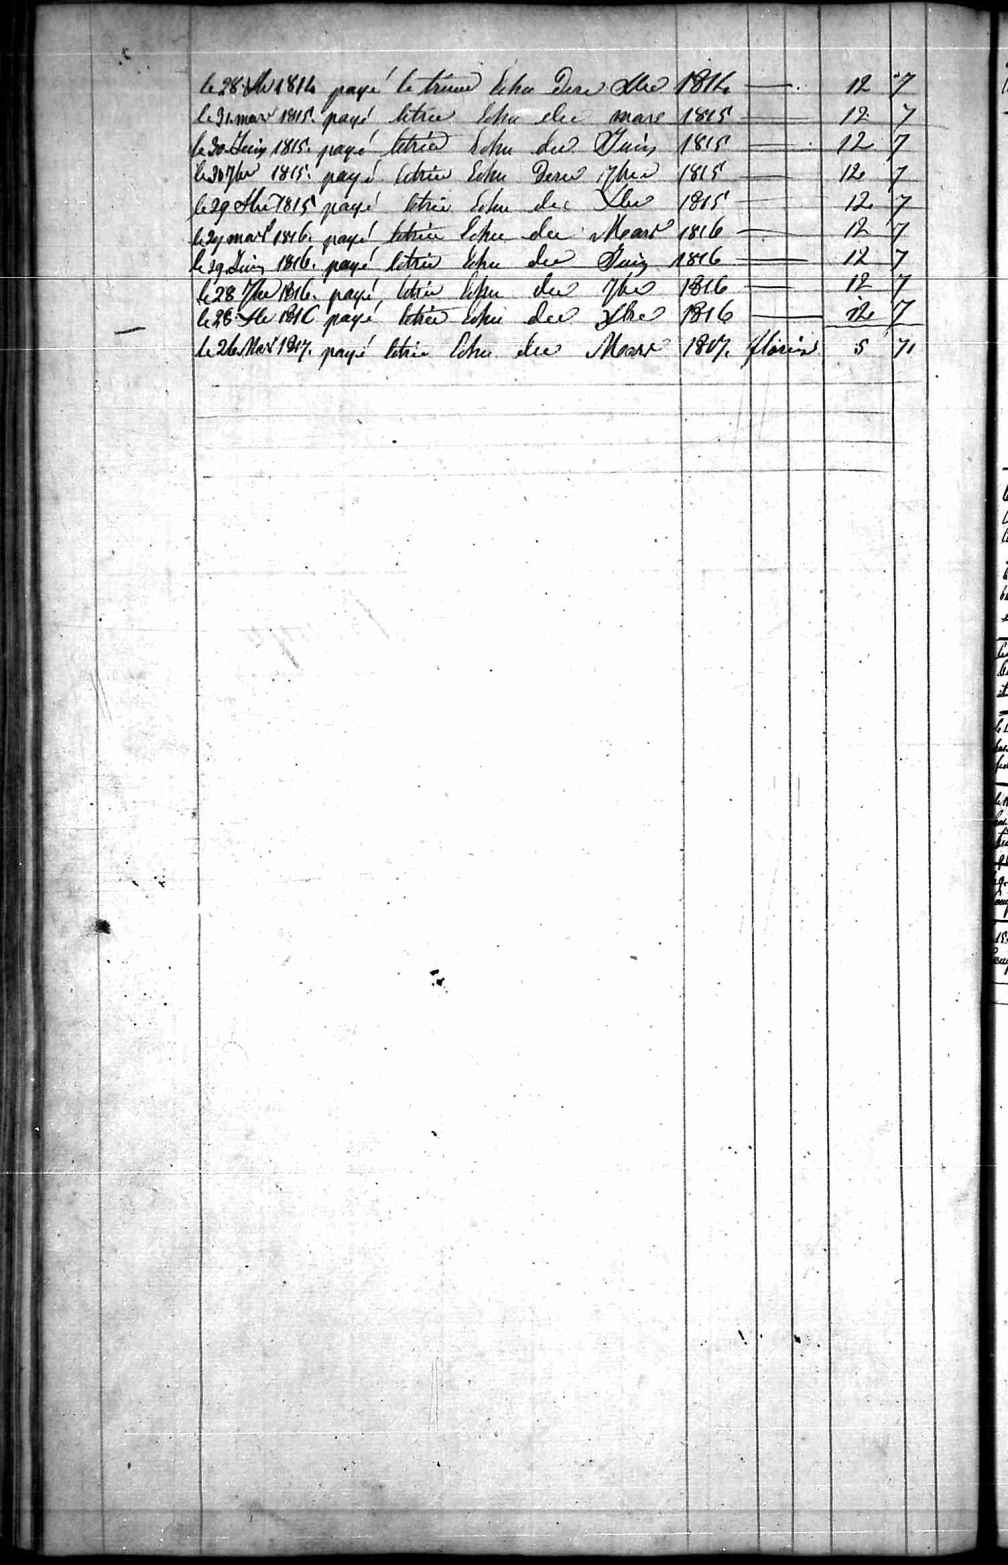 le 28 Xbre 1814 payé le trime Echu Dere Xbre 1814 12 7
le 31 mars 1815. payé le trie Echu du mars 1815 12 7
le 30 Juin 1815. payé le trie Echu du Juin 1815 12 7
le 30 7bre 1815. payé le trie Echu Dere 7bre 1815 12 7
le 29 Xbre 1815 payé le trie Echu du Xbre 1815 12 7
le 29 mars 1816. payé le trie Echu du Mars 1816 12 7
le 29 Juin 1816. payé le trie Echu du Juin 1816 12 7
le 28 7bre 1816. payé le trie Echu du 7bre 1816 12 7
le 28 Xbre 1816 payé le trie Echu du Xbre 1816 12 7
le 26 Mars 1817. payé le trie Echu du Mars 1817. florins 5 71